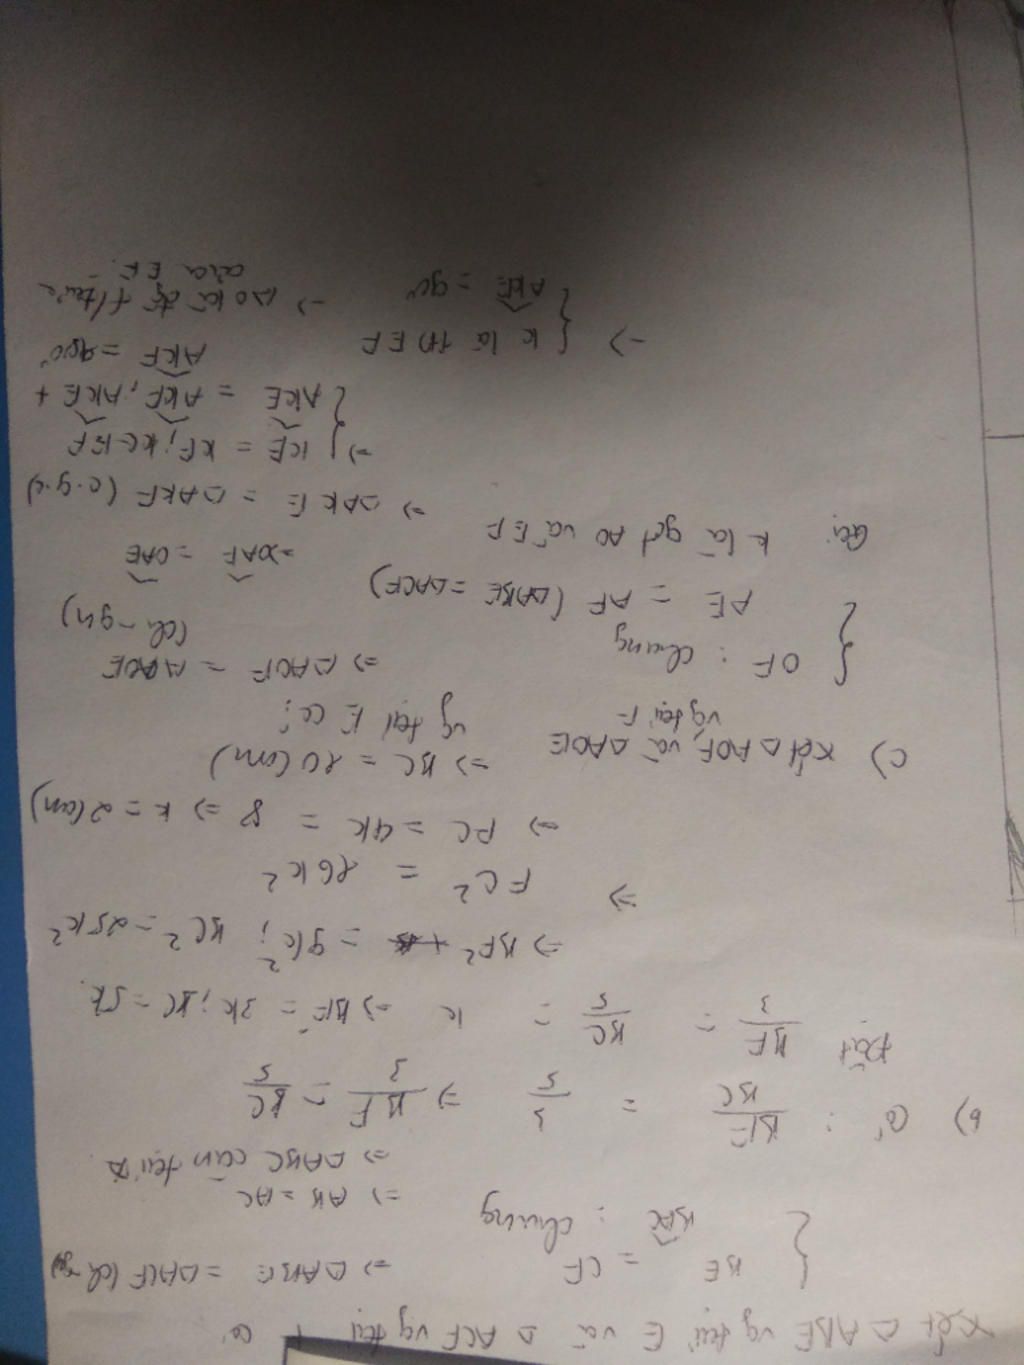 Xét △ABE vg tại E và △ACF vg tại F có
{ BE = CF
BAC : chung
⇒ △ABE = △ACF (ch-gn)
⇒ AB = AC
⇒ △ABC cân tại A
b) Có : BF/BC = 3/5 ⇒ BF/3 = BC/5
Đặt BF/3 = BC/5 = k ⇒ BF = 3k; BC = 5k
⇒ BF² = 9k²; BC² = 25k²
⇒ FC² = 16k²
⇒ FC = 4k = 8 ⇒ k = 2 (cm)
⇒ BC = 10 (cm)
c) Xét △AOF vg tại F và △AOE vg tại E có:
{ OF : chung
AE = AF (△ABE = △ACF)
⇒ △AOF = △AOE (ch-gn)
⇒ OAF = OAE
Gọi K là gđ AO và EF
⇒ △AKE = △AKF (c.g.c)
⇒ { KE = KF; K∈EF
AKE = AKF; AKE + AKF = 180°
⇒ { K là TĐ EF
AKE = 90°
⇒ AO là đg t/trực của EF.